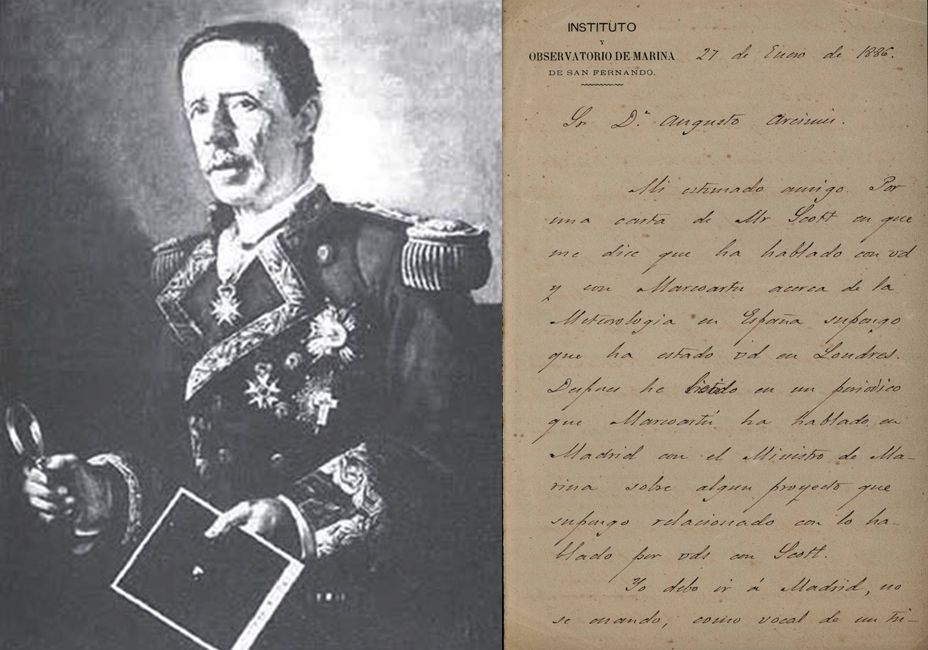 INSTITUTO
Y
OBSERVATORIO DE MARINA
DE SAN FERNANDO.
27 de Enero de 1886.
Sr Dn. Augusto Arcimis.
Mi estimado amigo. Por
una carta de Mr Scott en que
me dice que ha hablado con vd
y con Marcoartu acerca de la
Meteorologia en España supongo
que ha estado vd en Londres.
Despues he leido en un periódico
que Marcoartú ha hablado en
Madrid con el Ministro de Ma-
rina sobre algun proyecto que
supongo relacionado con lo ha-
blado por vds con Scott.
Yo debo ir á Madrid, no
se cuando, como vocal de un tri-